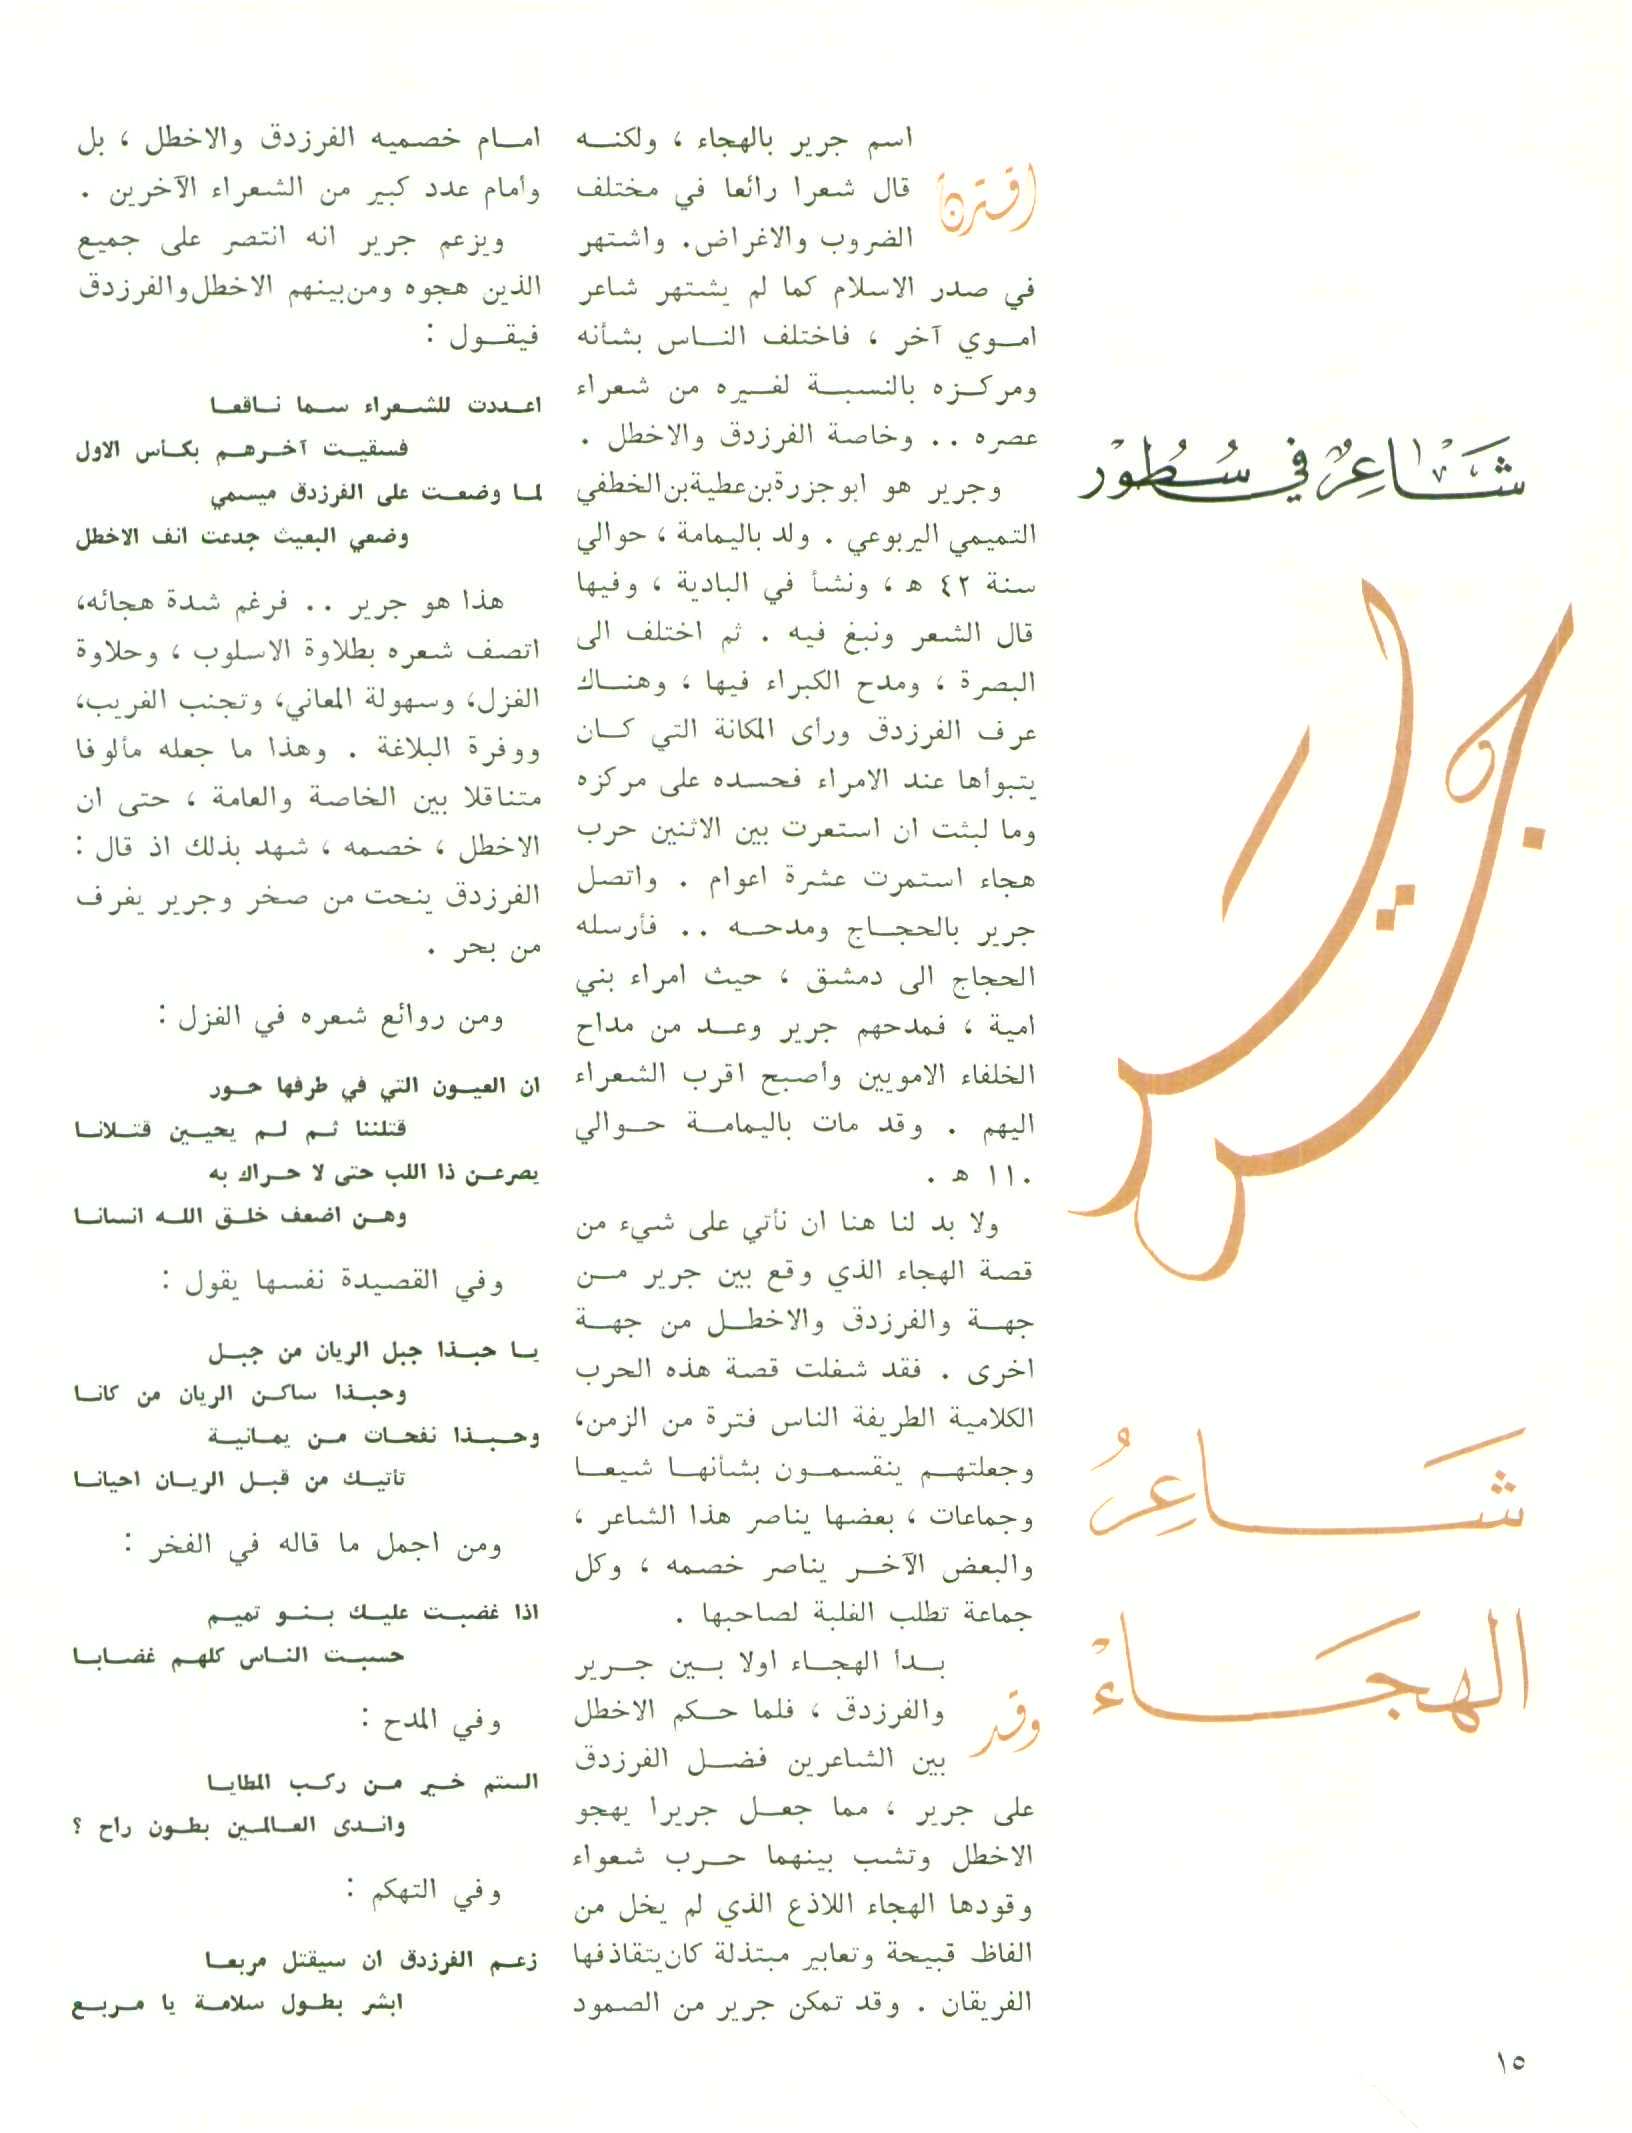 شَاعِرٌ في سُطُور
جرير
شَاعِرُ
الهجَاءْ
اقترن اسم جرير بالهجاء ، ولكنه
قال شعرا رائعا في مختلف
الضروب والاغراض. واشتهر
في صدر الاسلام كما لم يشتهر شاعر
اموي آخر ، فاختلف الناس بشأنه
ومركزه بالنسبة لغيره من شعراء
عصره .. وخاصة الفرزدق والاخطل .
وجرير هو ابو جزرة بن عطية بن الخطفي
التميمي اليربوعي . ولد باليمامة ، حوالي
سنة ٤٢ ه ، ونشأ في البادية ، وفيها
قال الشعر ونبغ فيه . ثم اختلف الى
البصرة ، ومدح الكبراء فيها ، وهناك
عرف الفرزدق ورأى المكانة التي كان
يتبوأها عند الامراء فحسده على مركزه
وما لبثت ان استعرت بين الاثنين حرب
هجاء استمرت عشرة اعوام . واتصل
جرير بالحجاج ومدحه .. فأرسله
الحجاج الى دمشق ، حيث امراء بني
امية ، فمدحهم جرير وعد من مداح
الخلفاء الامويين وأصبح اقرب الشعراء
اليهم . وقد مات باليمامة حوالي
١١٠ ه .
ولا بد لنا هنا ان نأتي على شيء من
قصة الهجاء الذي وقع بين جرير من
جهة والفرزدق والاخطل من جهة
اخرى . فقد شغلت قصة هذه الحرب
الكلامية الطريفة الناس فترة من الزمن،
وجعلتهم ينقسمون بشأنها شيعا
وجماعات ، بعضها يناصر هذا الشاعر ،
والبعض الآخر يناصر خصمه ، وكل
جماعة تطلب الغلبة لصاحبها .
وقد بدأ الهجاء اولا بين جرير
والفرزدق ، فلما حكم الاخطل
بين الشاعرين فضل الفرزدق
على جرير ، مما جعل جريرا يهجو
الاخطل وتشب بينهما حرب شعواء
وقودها الهجاء اللاذع الذي لم يخل من
الفاظ قبيحة وتعابير مبتذلة كان يتقاذفها
الفريقان . وقد تمكن جرير من الصمود
امام خصميه الفرزدق والاخطل ، بل
وأمام عدد كبير من الشعراء الآخرين .
ويزعم جرير انه انتصر على جميع
الذين هجوه ومن بينهم الاخطل والفرزدق
فيقول :
اعددت للشعراء سما ناقعا
فسقيت آخرهم بكأس الاول
لما وضعت على الفرزدق ميسمي
وضغي البعيث جدعت انف الاخطل
هذا هو جرير .. فرغم شدة هجائه،
اتصف شعره بطلاوة الاسلوب ، وحلاوة
الغزل، وسهولة المعاني، وتجنب الغريب،
ووفرة البلاغة . وهذا ما جعله مألوفا
متناقلا بين الخاصة والعامة ، حتى ان
الاخطل ، خصمه ، شهد بذلك اذ قال :
الفرزدق ينحت من صخر وجرير يغرف
من بحر .
ومن روائع شعره في الغزل :
ان العيون التي في طرفها حور
قتلننا ثم لم يحيين قتلانا
يصرعن ذا اللب حتى لا حراك به
وهن اضعف خلق الله انسانا
وفي القصيدة نفسها يقول :
يا حبذا جبل الريان من جبل
وحبذا ساكن الريان من كانا
وحبذا نفحات من يمانية
تأتيك من قبل الريان احيانا
ومن اجمل ما قاله في الفخر :
اذا غضبت عليك بنو تميم
حسبت الناس كلهم غضابا
وفي المدح :
الستم خير من ركب المطايا
واندى العالمين بطون راح ؟
وفي التهكم :
زعم الفرزدق ان سيقتل مربعا
ابشر بطول سلامة يا مربع
١٥